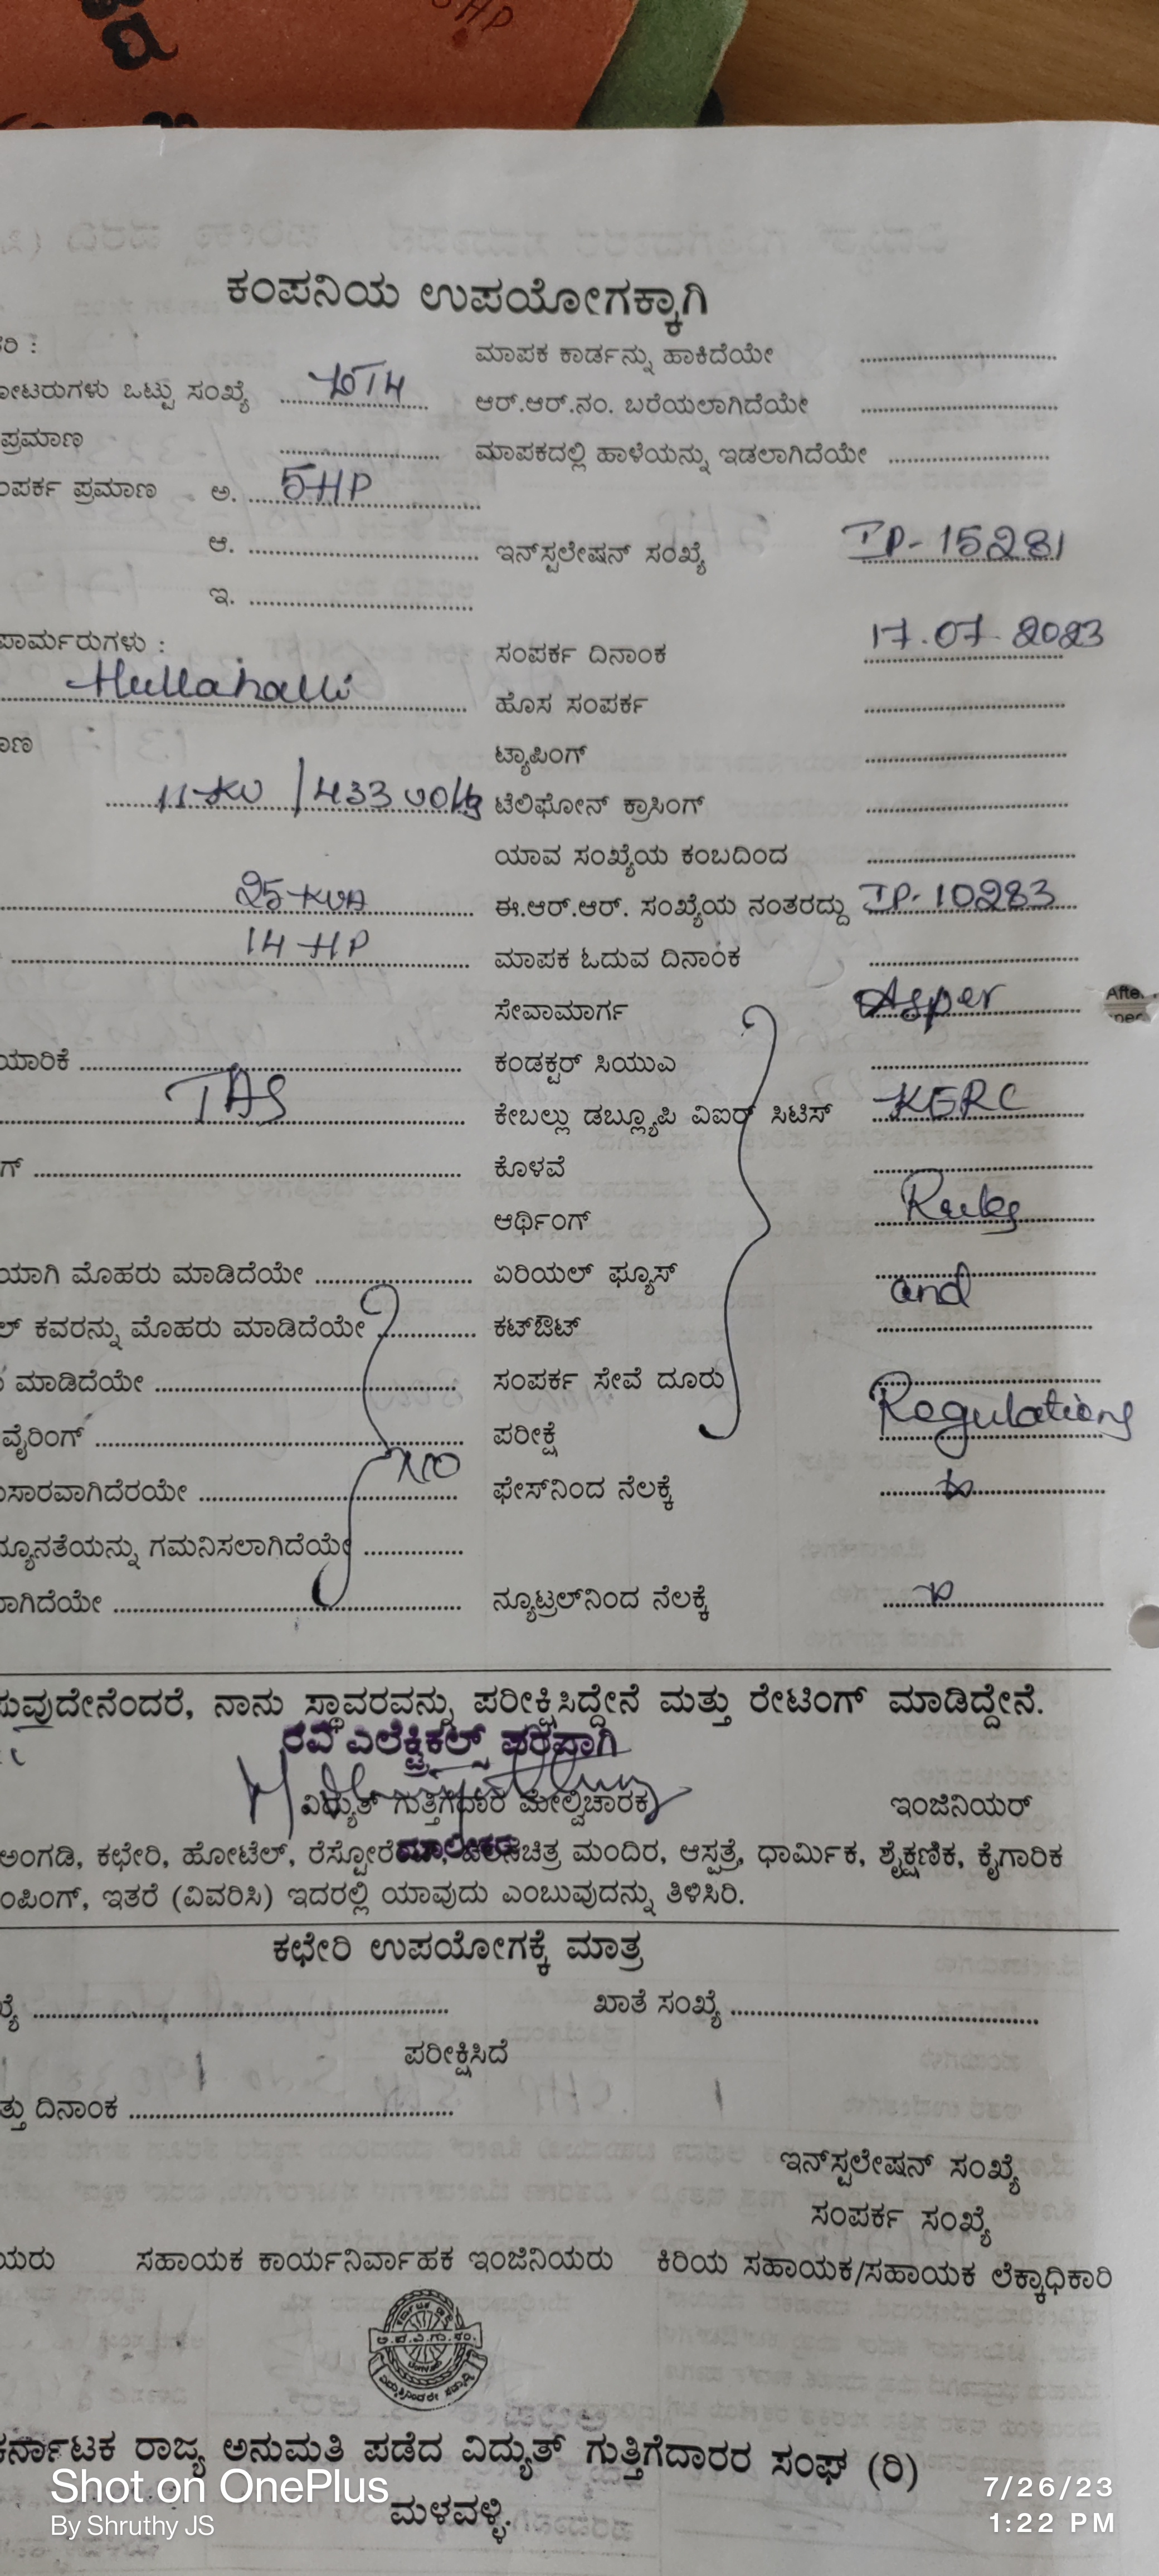 HP
ಕಂಪನಿಯ ಉಪಯೋಗಕ್ಕಾಗಿ
ರಿ : ಮಾಪಕ ಕಾರ್ಡನ್ನು ಹಾಕಿದೆಯೇ
ೋಟರುಗಳು ಒಟ್ಟು ಸಂಖ್ಯೆ ಆರ್.ಆರ್.ನಂ. ಬರೆಯಲಾಗಿದೆಯೇ
ಪ್ರಮಾಣ ಮಾಪಕದಲ್ಲಿ ಹಾಳೆಯನ್ನು ಇಡಲಾಗಿದೆಯೇ
ಂಪರ್ಕ ಪ್ರಮಾಣ ಅ. 5HP
ಆ. ಇನ್‌ಸ್ಟಲೇಷನ್ ಸಂಖ್ಯೆ IP-15281
ಇ.
ಪಾರ್ಮರುಗಳು : ಸಂಪರ್ಕ ದಿನಾಂಕ 17.07.2023
Hullahalli ಹೊಸ ಸಂಪರ್ಕ
ಾಣ ಟ್ಯಾಪಿಂಗ್
11 KV / 433 volts ಟೆಲಿಫೋನ್ ಕ್ರಾಸಿಂಗ್
ಯಾವ ಸಂಖ್ಯೆಯ ಕಂಬದಿಂದ
25 KVA ಈ.ಆರ್.ಆರ್. ಸಂಖ್ಯೆಯ ನಂತರದ್ದು IP-10283
14 HP ಮಾಪಕ ಓದುವ ದಿನಾಂಕ
ಸೇವಾಮಾರ್ಗ Asper
ಯಾರಿಕೆ ಕಂಡಕ್ಟರ್ ಸಿಯುಎ
TAS ಕೇಬಲ್ಲು ಡಬ್ಲ್ಯೂಪಿ ವಿಐರ್ ಸಿಟಿಸ್ KERC
ಗ್ ಕೊಳವೆ
ಆರ್ಥಿಂಗ್ Rules
ಯಾಗಿ ಮೊಹರು ಮಾಡಿದೆಯೇ ಏರಿಯಲ್ ಫ್ಯೂಸ್ and
ಲ್ ಕವರನ್ನು ಮೊಹರು ಮಾಡಿದೆಯೇ ಕಟ್‌ಔಟ್
ಮಾಡಿದೆಯೇ ಸಂಪರ್ಕ ಸೇವೆ ದೂರು
ವೈರಿಂಗ್ ಪರೀಕ್ಷೆ Regulations
ುಸಾರವಾಗಿದೆರಯೇ ಫೇಸ್‌ನಿಂದ ನೆಲಕ್ಕೆ
ನ್ಯೂನತೆಯನ್ನು ಗಮನಿಸಲಾಗಿದೆಯೇ
ಾಗಿದೆಯೇ ನ್ಯೂಟ್ರಲ್‌ನಿಂದ ನೆಲಕ್ಕೆ
ಸುವುದೇನೆಂದರೆ, ನಾನು ಸ್ಥಾವರವನ್ನು ಪರೀಕ್ಷಿಸಿದ್ದೇನೆ ಮತ್ತು ರೇಟಿಂಗ್ ಮಾಡಿದ್ದೇನೆ.
ರವಿ ಎಲೆಕ್ಟ್ರಿಕಲ್ಸ್ ಪರವಾಗಿ
ವಿದ್ಯುತ್ ಗುತ್ತಿಗೆದಾರ ಮೇಲ್ವಿಚಾರಕ ಇಂಜಿನಿಯರ್
ಮಾಲೀಕರು
ಅಂಗಡಿ, ಕಛೇರಿ, ಹೋಟೆಲ್, ಮಂದಿರ, ಆಸ್ಪತ್ರೆ, ಧಾರ್ಮಿಕ, ಶೈಕ್ಷಣಿಕ, ಕೈಗಾರಿಕ
ಂಪಿಂಗ್, ಇತರೆ (ವಿವರಿಸಿ) ಇದರಲ್ಲಿ ಯಾವುದು ಎಂಬುವುದನ್ನು ತಿಳಿಸಿರಿ.
ಕಛೇರಿ ಉಪಯೋಗಕ್ಕೆ ಮಾತ್ರ
ಖ್ಯೆ ಖಾತೆ ಸಂಖ್ಯೆ
ಪರೀಕ್ಷಿಸಿದೆ
ತ್ತು ದಿನಾಂಕ
ಇನ್‌ಸ್ಟಲೇಷನ್ ಸಂಖ್ಯೆ
ಸಂಪರ್ಕ ಸಂಖ್ಯೆ
ಯರು ಸಹಾಯಕ ಕಾರ್ಯನಿರ್ವಾಹಕ ಇಂಜಿನಿಯರು ಕಿರಿಯ ಸಹಾಯಕ/ಸಹಾಯಕ ಲೆಕ್ಕಾಧಿಕಾರಿ
ಕರ್ನಾಟಕ ರಾಜ್ಯ ಅನುಮತಿ ಪಡೆದ ವಿದ್ಯುತ್ ಗುತ್ತಿಗೆದಾರರ ಸಂಘ (ರಿ)
ಮಳವಳ್ಳಿ.
Shot on OnePlus
By Shruthy JS
7/26/23
1:22 PM